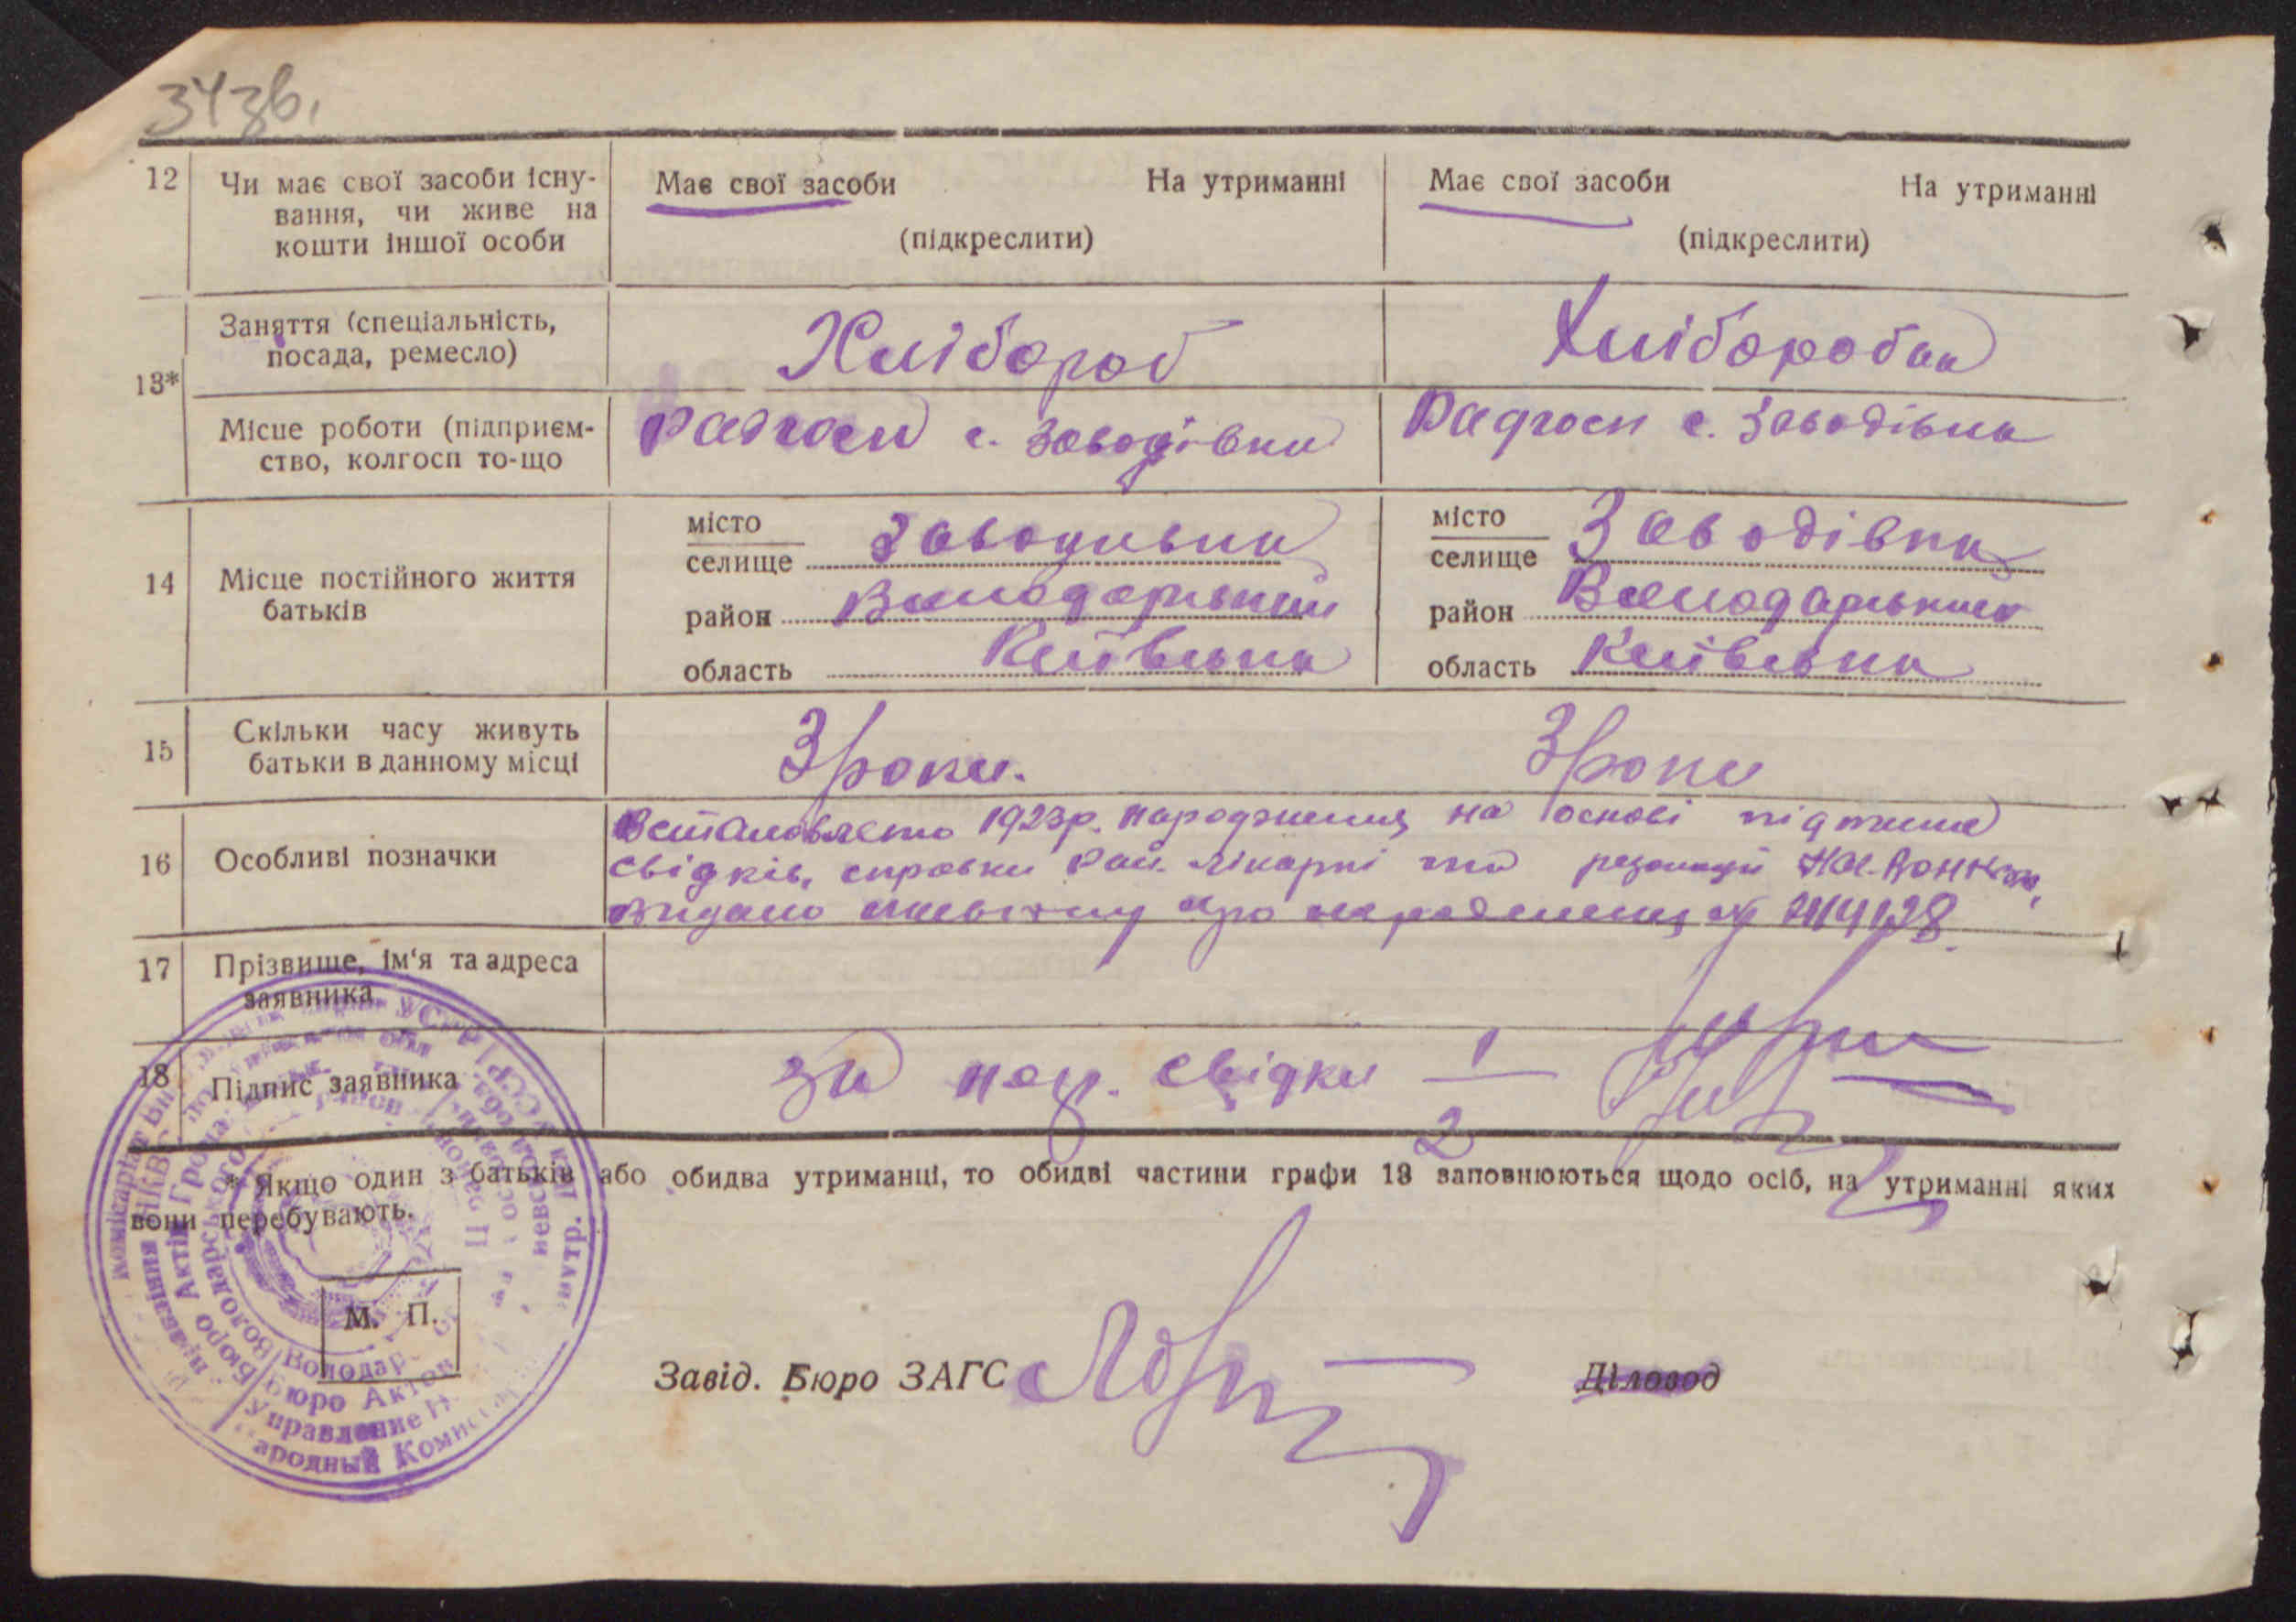 34зв.
12 Чи має свої засоби існу- Має свої засоби На утриманні Має свої засоби На утриманні
вання, чи живе на
кошти іншої особи (підкреслити) (підкреслити)
13* Заняття (спеціальність,
посада, ремесло) Хлібороб Хліборобка
Місце роботи (підприєм-
ство, колгосп то-що Радгосп с. Заводівка Радгосп с. Заводівка
14 Місце постійного життя
батьків
місто
селище Заводивка
район Володарський
область Київська
місто
селище Заводівка
район Володарський
область Київська
15 Скільки часу живуть
батьки в данному місці 3 роки. 3 роки
16 Особливі позначки
Встановлено 1923р. народження на основі підписив
свідків, справки Рай. лікарні та резолюції
Видано про народження №
17 Прізвище, ім'я та адреса
заявника
18 Підпис заявника за свідки 1
2
* Якщо один з батьків або обидва утриманці, то обидві частини графи 13 заповнюються щодо осіб, на утриманні яких
вони перебувають.
М. П.
Завід. Бюро ЗАГС Діловод
Володар
Бюро Актов
Управление Н
ародный Комисс